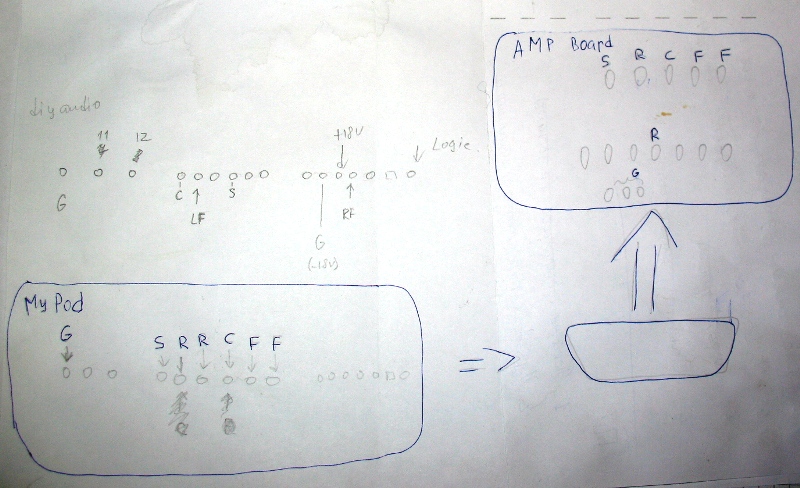 AMP Board
S R C F F
R
G
diyaudio
11 12
+18V
Logic.
C S
LF
RF
G
G
(-18V)
My Pod
G
S R R C F F